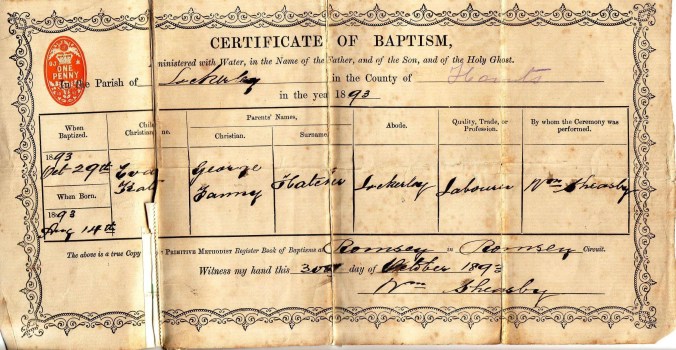 CERTIFICATE OF BAPTISM,
ministered with Water, in the Name of the Father, and of the Son, and of the Holy Ghost.
ONE PENNY
In the Parish of Lockerley in the County of Hants
in the year 1893
When Baptized.
Parents' Names,
Christian.
Surname
Abode.
Quality, Trade, or Profession.
By whom the Ceremony was performed.
1893
Oct 29th
George
Fanny
Hatcher
Lockerley
Labourer
Wm Sheasby
When Born.
1893
Aug 14th
The above is a true Copy PRIMITIVE METHODIST Register Book of Baptisms at Romsey in Romsey Circuit.
Witness my hand this 30th day of October 1893
Wm Sheasby